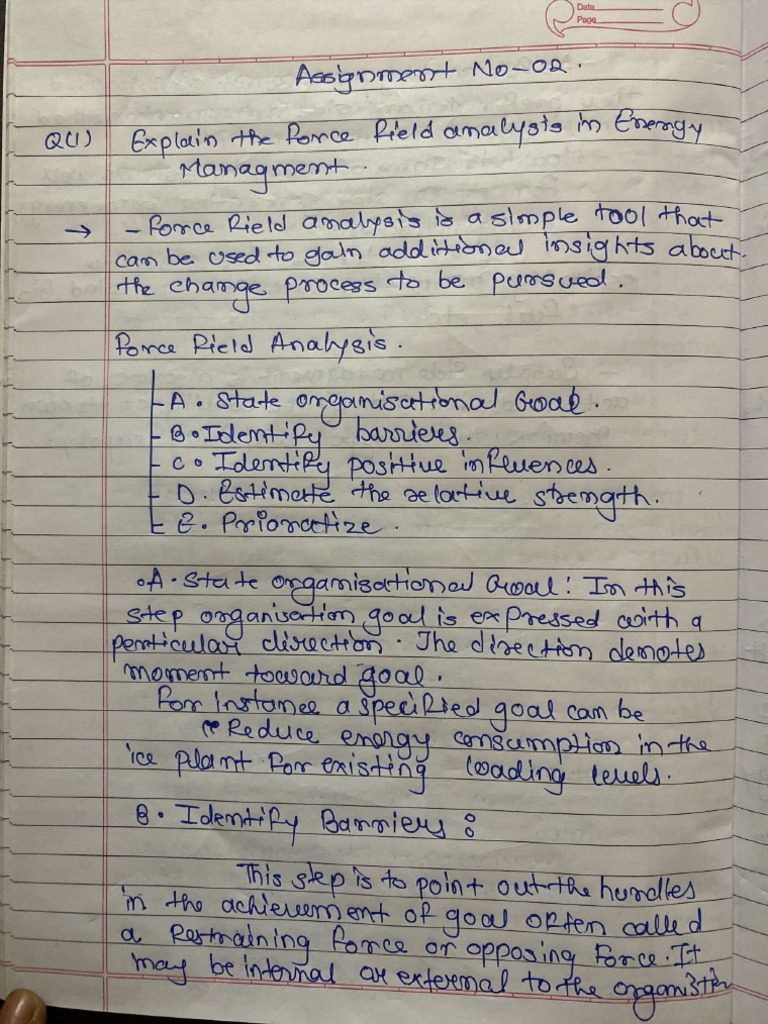 Date
Page
Assignment No-02.
Q(1) Explain the force field analysis in Energy
Managment.
→ - Force Field analysis is a simple tool that
can be used to gain additional insights about.
the change process to be pursued.
Force Field Analysis.
A. State organisational Goal.
B. Identify barriers.
C. Identify positive influences.
D. Estimate the relative strength.
E. Prioratize.
A. State organisational Goal: In this
step organisation goal is expressed with a
perticular direction. The direction denotes
moment toward goal.
For instance a specified goal can be
"Reduce energy consumption in the
ice plant for existing loading levels.
B. Identify Barriers :
This step is to point out the hurdles
in the achievement of goal often called
a Restraining force or opposing force. It
may be internal or external to the